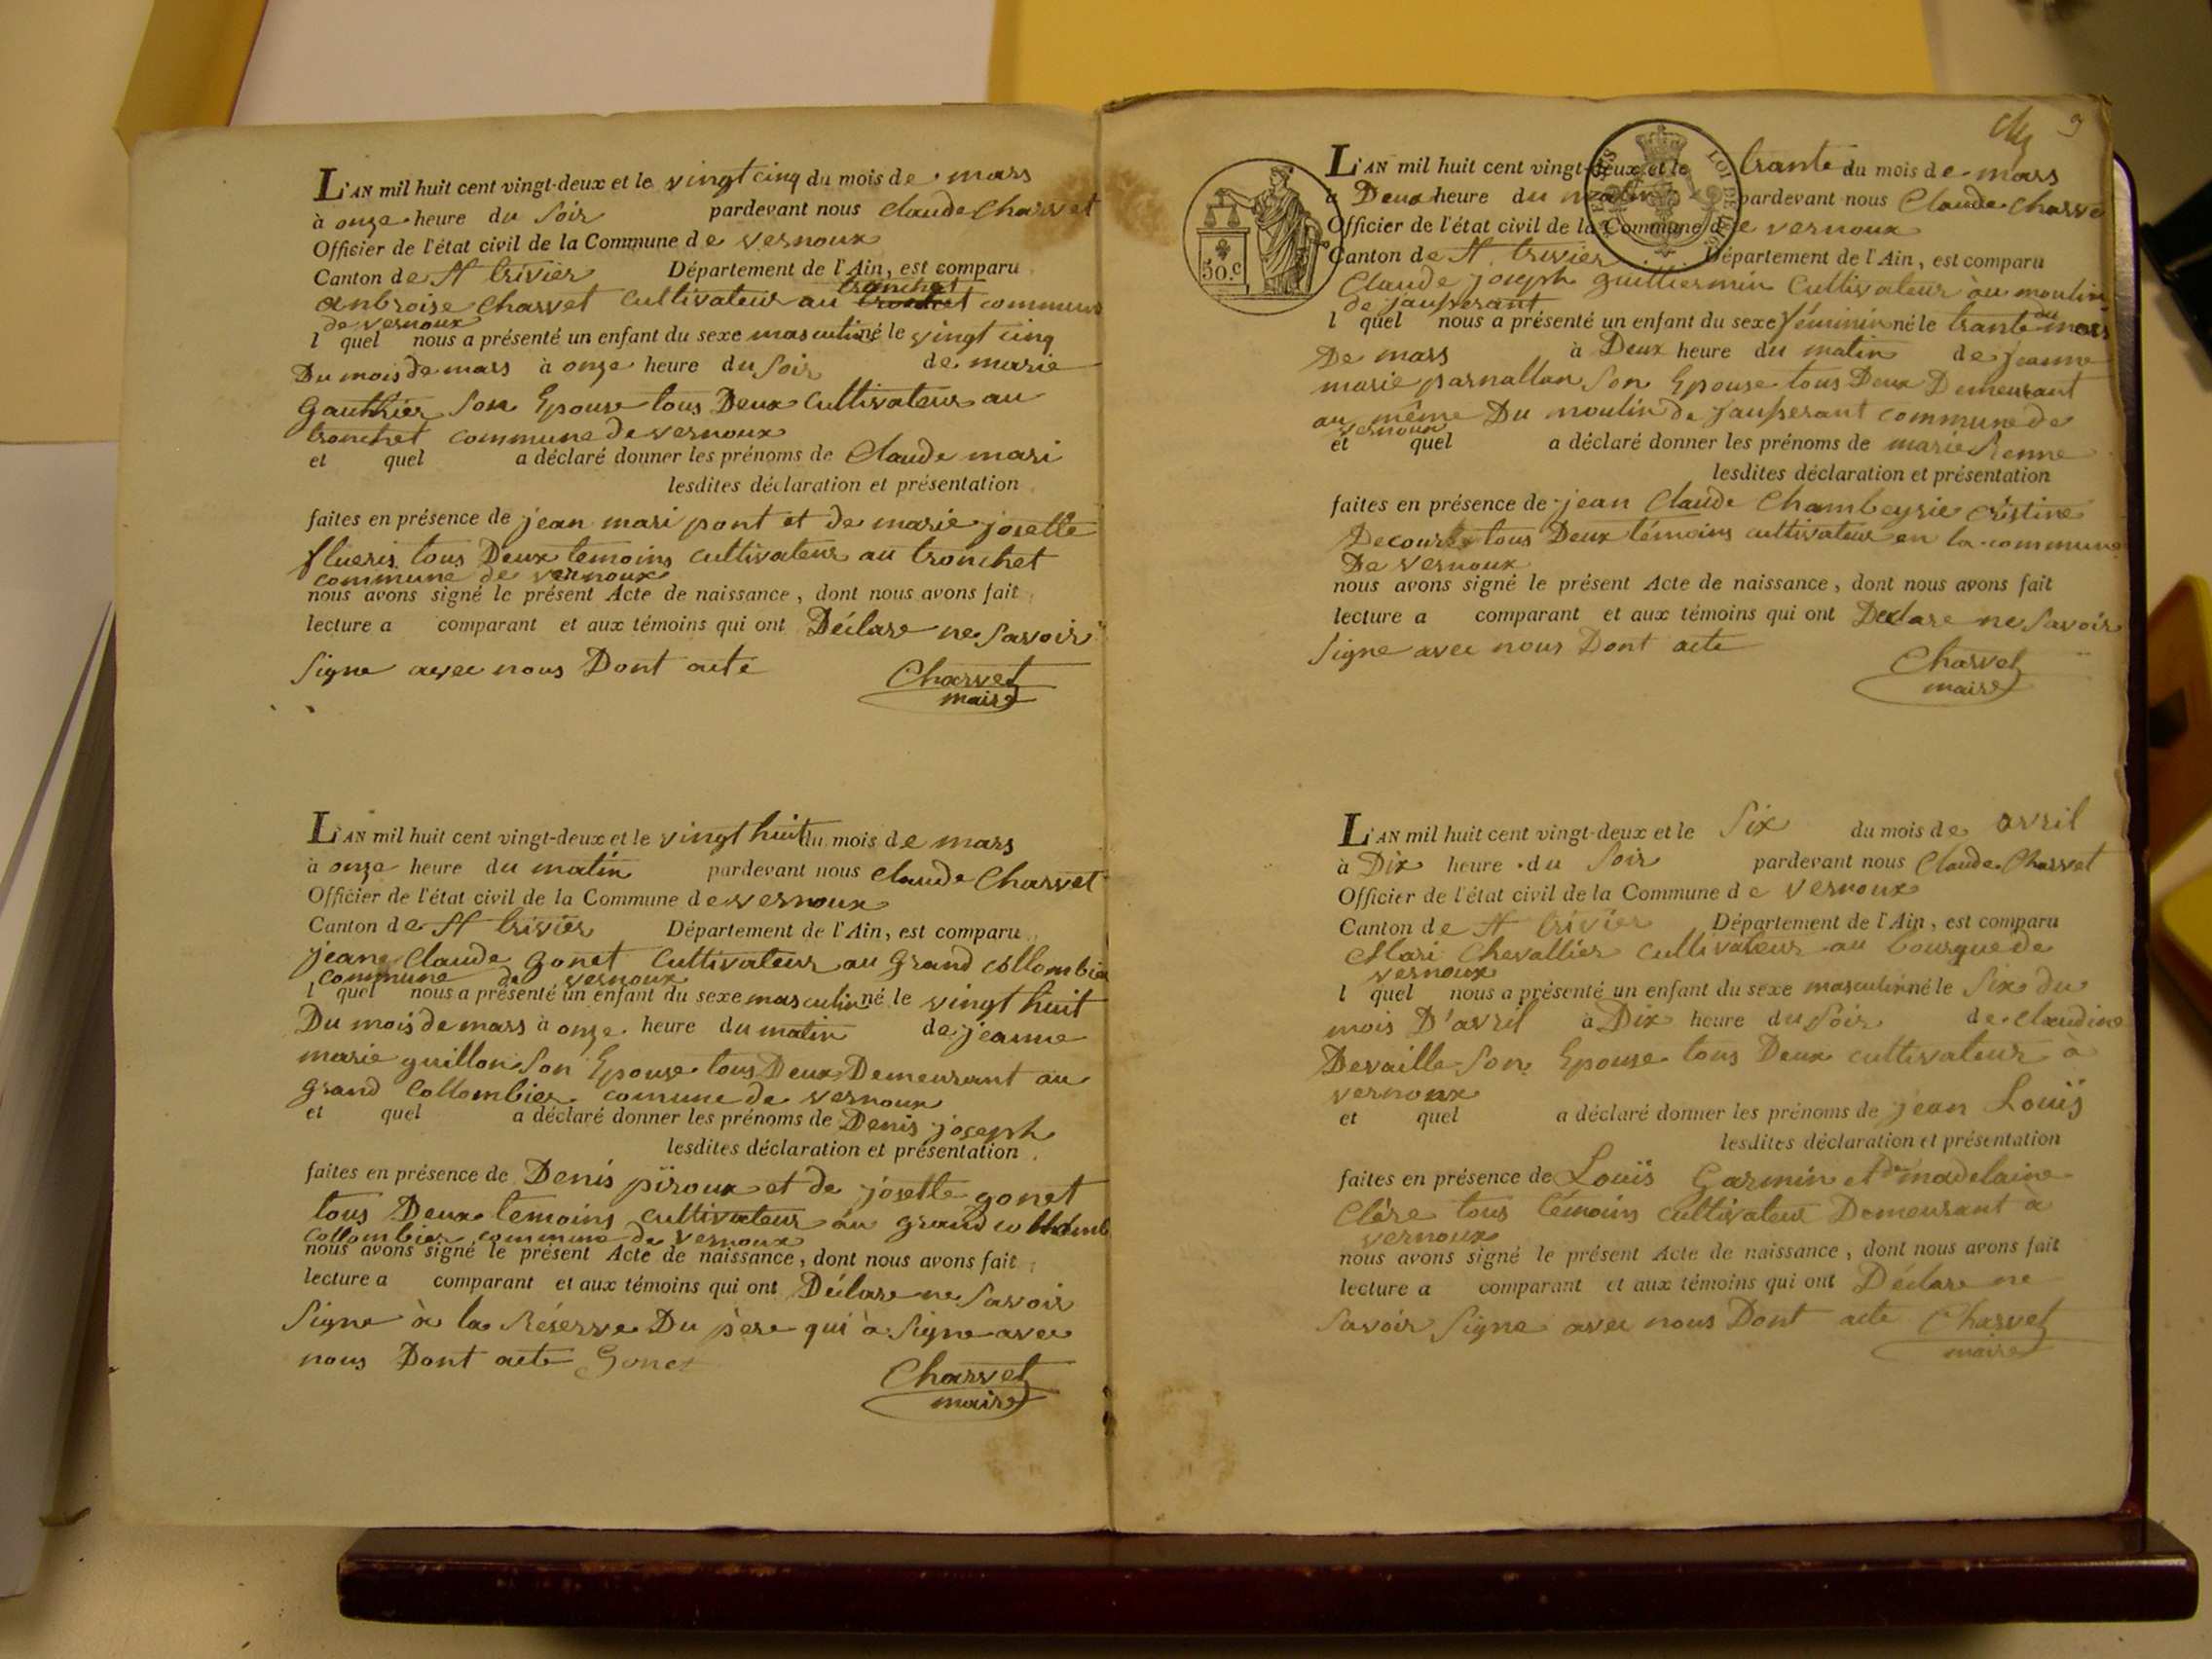 L'AN mil huit cent vingt-deux et le vingt cinq du mois de mars
à onze heure du soir pardevant nous Claude Charvet
Officier de l'état civil de la Commune de vernoux
Canton de St trivier Département de l'Ain, est comparu
tronchet
anbroise Charvet cultivateur au commune
de vernoux
l quel nous a présenté un enfant du sexe masculin né le vingt cinq
Du mois de mars à onze heure du soir de marie
Gauthier son Epouse tous Deux cultivateur au
tronchet commune de vernoux
et quel a déclaré donner les prénoms de Claude mari
lesdites déclaration et présentation
faites en présence de jean mari pont et de marie josette
flueris tous Deux temoins cultivateur au tronchet
commune de vernoux
nous avons signé le présent Acte de naissance, dont nous avons fait
lecture a comparant et aux témoins qui ont Déclare ne savoir
signe avec nous Dont acte Charvet
maire
L'AN mil huit cent vingt-deux et le vingt huit du mois de mars
à onze heure du matin pardevant nous claude Charvet
Officier de l'état civil de la Commune de vernoux
Canton de St trivier Département de l'Ain, est comparu
jean Claude gonet cultivateur au grand collombier
commune de vernoux
l quel nous a présenté un enfant du sexe masculin né le vingt huit
Du mois de mars à onze heure du matin de jeanne
marie guillon son Epouse tous Deux Demeurant au
grand Collombier comune de vernoux
et quel a déclaré donner les prénoms de Denis joseph
lesdites déclaration et présentation
faites en présence de Denis pïroux et de josette gonet
tous Deux temoins cultivateur au grand
collombier commune de vernoux
nous avons signé le présent Acte de naissance, dont nous avons fait
lecture a comparant et aux témoins qui ont Déclare ne savoir
signe à la Réserve Du père qui à signe avec
nous Dont acte Gonet Charvet
maire
9
50.c
L'AN mil huit cent vingt-deux et le trante du mois de mars
à Deux heure du matin pardevant nous Claude Charve
Officier de l'état civil de la Commune de vernoux
Canton de St trivier Département de l'Ain, est comparu
Claude joseph guilliermin cultivateur au moulin
de jausserant
l quel nous a présenté un enfant du sexe féminin né le trante du mois
De mars à Deux heure du matin de jeanne
marie parnallan son Epouse tous Deux Demeurant
au même Du moulin de jausserant commune de
vernoux
et quel a déclaré donner les prénoms de marie Renne
lesdites déclaration et présentation
faites en présence de jean Claude Chambeyrie cristine
Decourt tous Deux témoins cultivateur en la commune
De vernoux
nous avons signé le présent Acte de naissance, dont nous avons fait
lecture a comparant et aux témoins qui ont Declare ne savoir
signe avec nous Dont acte Charvet
maire
L'AN mil huit cent vingt-deux et le six du mois de avril
à Dix heure du soir pardevant nous Claude Charvet
Officier de l'état civil de la Commune de vernoux
Canton de St trivier Département de l'Ain, est comparu
Mari Chevallier cultivateur au bourque de
vernoux
l quel nous a présenté un enfant du sexe masculin né le six du
mois D'avril à Dix heure du soir de claudine
Devaille son Epouse tous Deux cultivateur à
vernoux
et quel a déclaré donner les prénoms de jean Louïs
lesdites déclaration et présentation
faites en présence de Louïs Garmin et de madelaine
Clère tous témoins cultivateur Demeurant à
vernoux
nous avons signé le présent Acte de naissance, dont nous avons fait
lecture a comparant et aux témoins qui ont Déclare ne
savoir signe avec nous Dont acte Charvet
maire